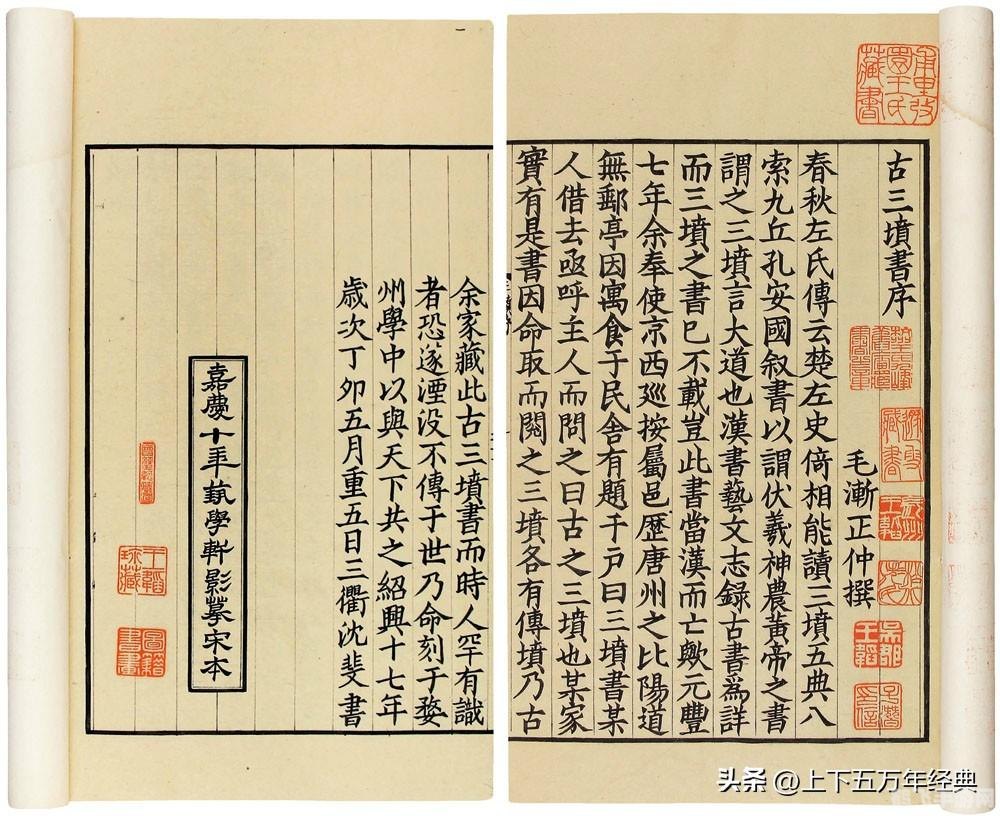 甫里弢園王氏藏書
古三墳書序
毛漸正仲撰
吳郡王韜
春秋左氏傳云楚左史倚相能讀三墳五典八
索九丘孔安國敘書以謂伏羲神農黃帝之書
謂之三墳言大道也漢書藝文志錄古書為詳
而三墳之書已不載豈此書當漢而亡歟元豐
七年余奉使京西巡按屬邑歷唐州之比陽道
無郵亭因寓食于民舍有題于戶曰三墳書某
人借去亟呼主人而問之曰古之三墳也某家
實有是書因命取而閱之三墳各有傳墳乃古
余家藏此古三墳書而時人罕有識
者恐遂湮没不傳于世乃命刻于婺
州學中以與天下共之紹興十七年
歲次丁卯五月重五日三衢沈斐書
嘉慶十年蓺學軒影摹宋本
王韜珍藏
头条 @上下五万年经典